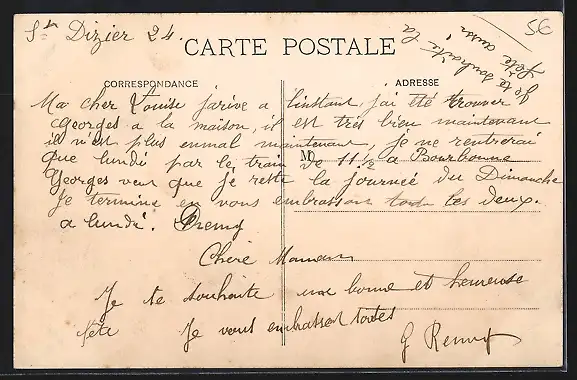 St Dizier 24.
56
Je te souhaite ta
fête aussi
CARTE POSTALE
CORRESPONDANCE
ADRESSE
Ma cher Louise j'arive a l'instant, j'ai été trouver
Georges a la maison, il est très bien maintenant
il n'est plus enmal maintenant, je ne rentrerai
que lundi par le train de 11 1/2 a Bourbonne
M
Georges veut que je reste la journée du Dimanche
Je termine en vous embrassant toutes les deux.
a lundi. Remy
Chère Maman
Je te souhaite une bonne et heureuse
fête Je vous embrassent toutes
G Remy